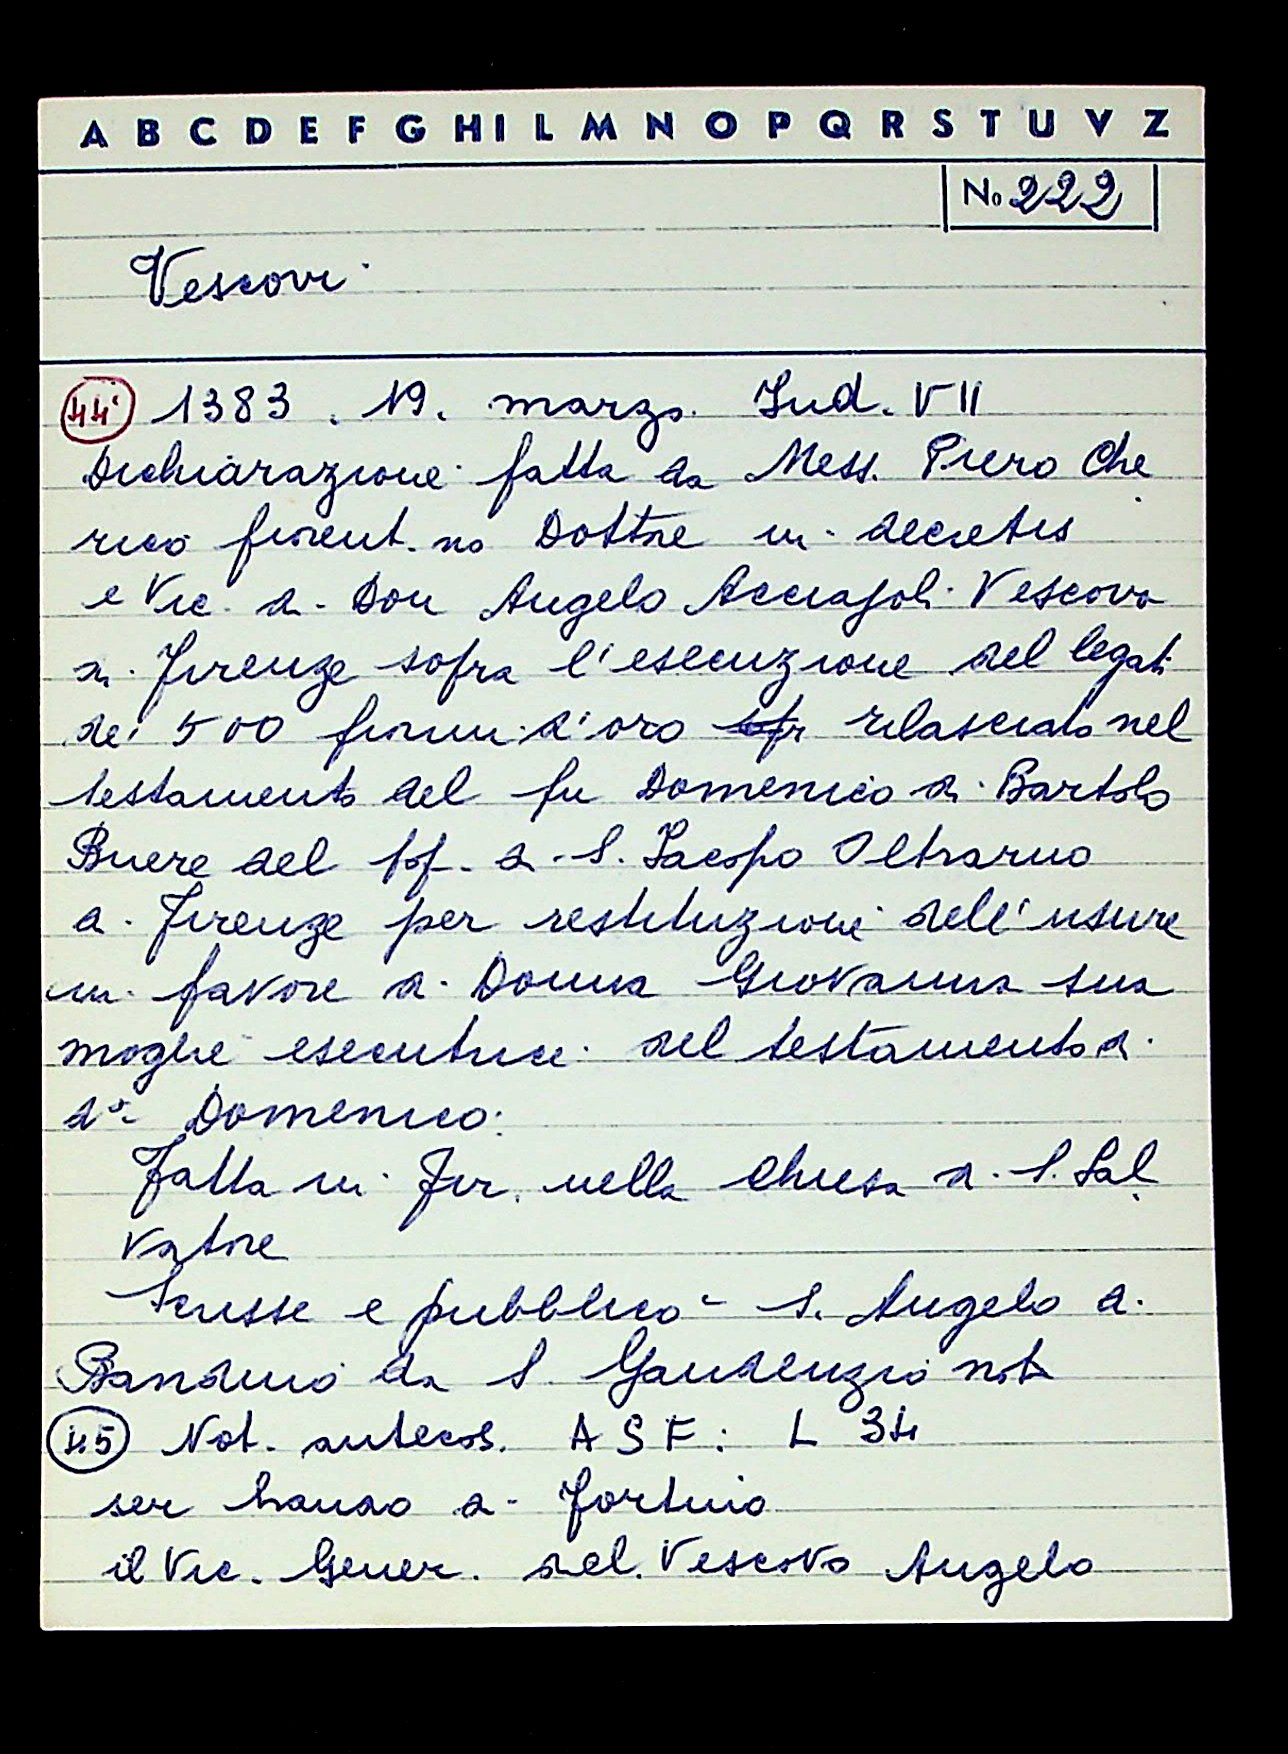 A B C D E F G H I L M N O P Q R S T U V Z
No 222
Vescovi
44 1383. 19. marzo. Ind. VII
Dichiarazione fatta da Mess. Piero Che
rico fiorent.no Dottore in decretis
e Vic. di Don Angelo Acciajoli Vescovo
di Firenze sopra l'esecuzione del legato
dei 500 fiorini d'oro rilasciato nel
testamento del fu Domenico di Bartolo
Buere del pop. di S. Jacopo Oltrarno
di Firenze per restituzioni dell'usure
in favore di Donna Giovanna sua
moglie esecutrice del testamento di
do Domenico.
Fatta in Fir. nella Chiesa di S. Sal
vatore
Scrisse e pubblicò S. Angelo di
Bandino da S. Gaudenzio not
45 Not. antecos. A S F: L 34
ser di Fortino
il Vic. Gener. del Vescovo Angelo